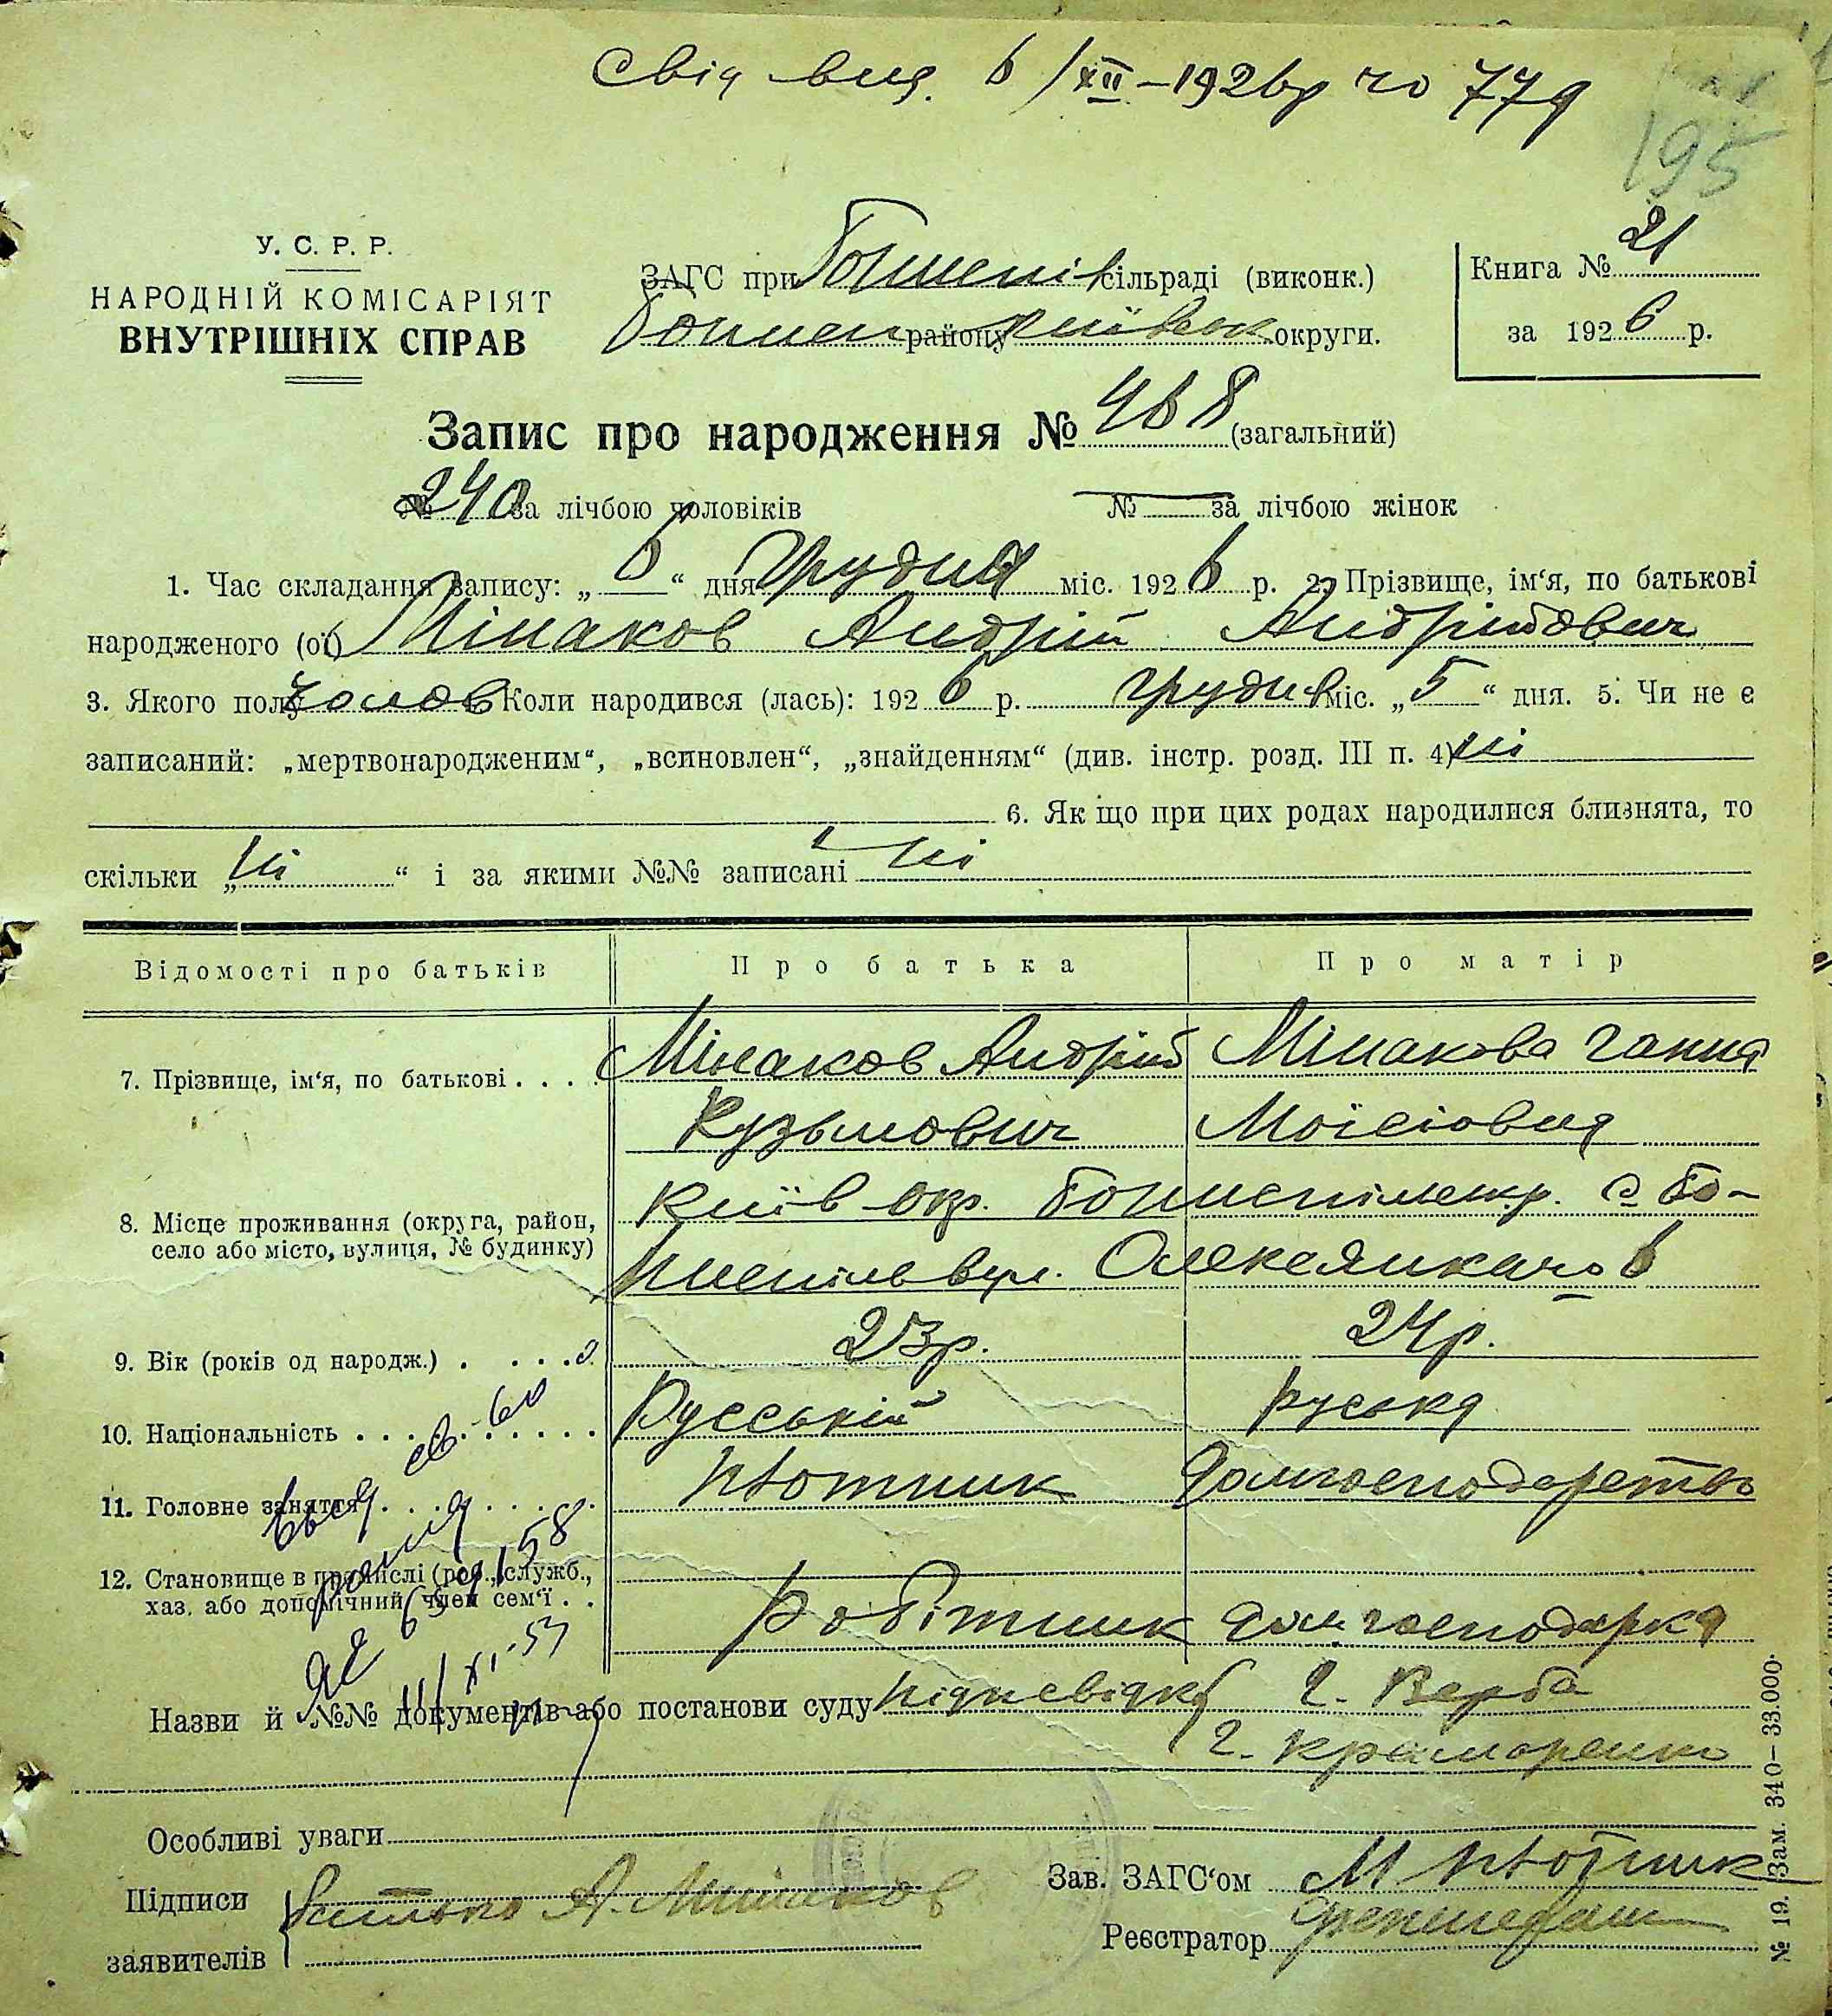 Свід вид. 6/XII-1926р чо 779
195
У. С. Р. Р.
НАРОДНІЙ КОМІСАРІЯТ
ВНУТРІШНІХ СПРАВ
ЗАГС при Боришпіль сільраді (виконк.)
району Київськ округи.
Книга № 21
за 1926 р.
Запис про народження № 468 (загальний)
№ 240 за лічбою чоловіків № — за лічбою жінок
1. Час складання запису: „6“ дня Грудня міс. 1926 р. 2. Прізвище, ім‘я, по батькові
народженого (ої) Мінаков Андрій Андрійович
3. Якого полу чолов Коли народився (лась): 1926 р. грудня міс. „5“ дня. 5. Чи не є
записаний: „мертвонародженим“, „всиновлен“, „знайденням“ (див. інстр. розд. III п. 4) ні
6. Як що при цих родах народилися близнята, то
скільки „ні“ і за якими №№ записані ні
Відомості про батьків Про батька Про матір
7. Прізвище, ім‘я, по батькові . . . . Мінаков Андрій Мінакова Ганна
Кузьмович Мойсіовна
8. Місце проживання (округа, район,
село або місто, вулиця, № будинку)
Київ окр.
9. Вік (років од народж.) . . . . . 23р. 24р.
10. Національність . . . . . . . . . Русській руська
11. Головне заняття . . . . . . . . плотник домгосподарство
12. Становище в промислі (роб., служб.,
хаз. або допомічний член сем‘ї . . робітник дом. господарка
Назви й №№ документів або постанови суду Г. Верба
Г. Крамаренко
Особливі уваги
Підписи
заявителів
батько А. Мінаков
Зав. ЗАГС‘ом М Плотник
Реєстратор
№ 19. Зам. 340—33.000.